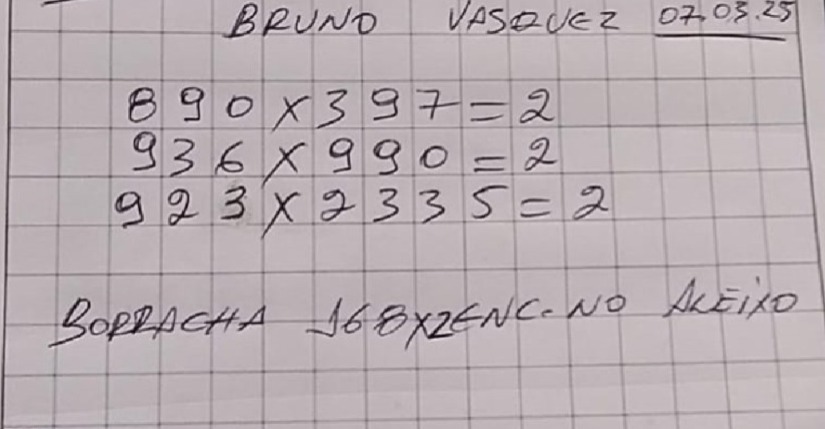 BRUNO VASQUEZ 07.03.25
890 X 397 = 2
936 X 990 = 2
923 X 2335 = 2
BORRACHA 168X2ENC. NO ALEIXO